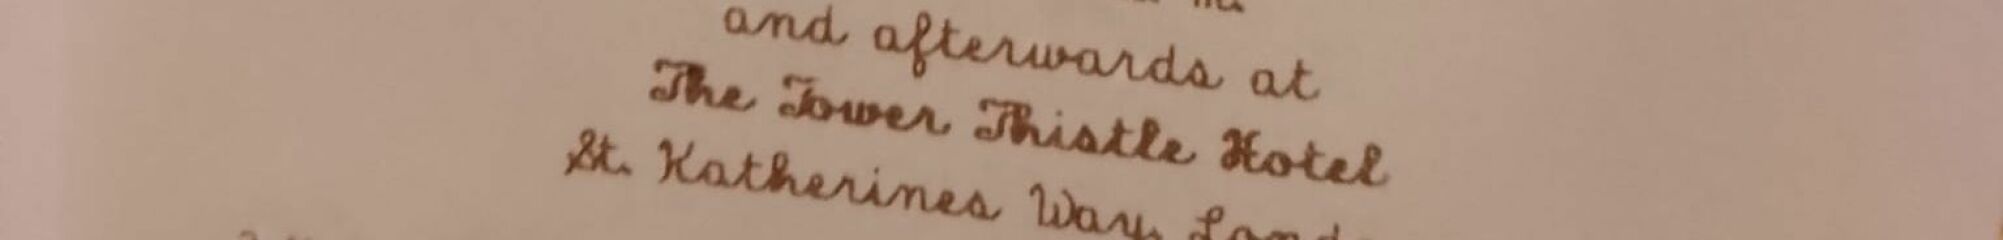 and afterwards at
The Tower Thistle Hotel
St. Katherines Way,